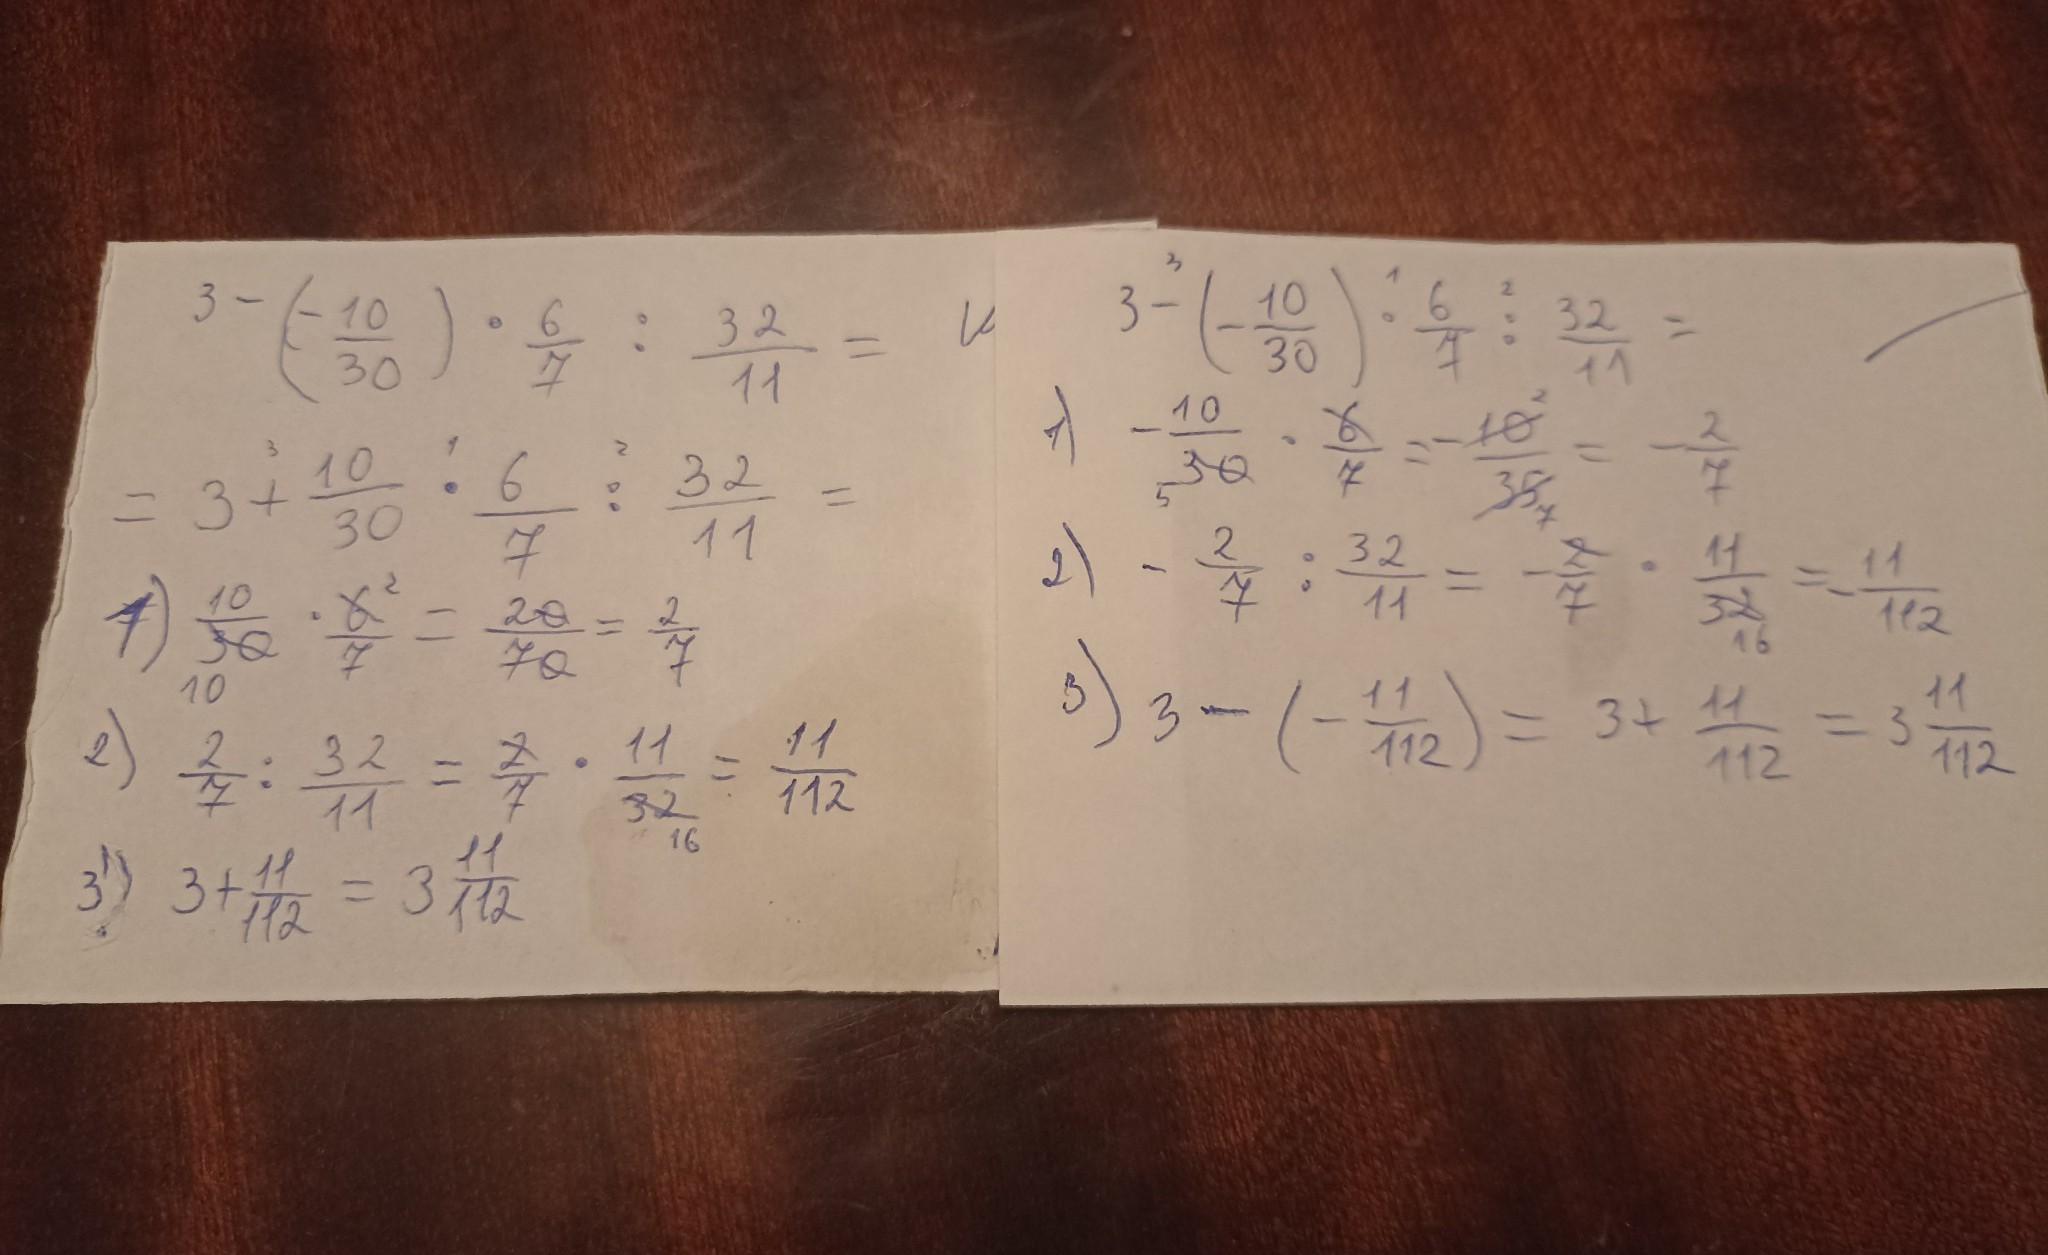 3 - (-10/30) · 6/7 : 32/11 =
= 3 +³ 10/30 ·¹ 6/7 :² 32/11 =
1) 10/30 10 · 6/7 ² = 20/70 = 2/7
2) 2/7 : 32/11 = 2/7 · 11/32 16 = 11/112
3) 3 + 11/112 = 3 11/112
3 -³ (-10/30) ·¹ 6/7 :² 32/11 =
1) -10/30 5 · 6/7 = -10/35 ² 7 = -2/7
2) -2/7 : 32/11 = -2/7 · 11/32 16 = -11/112
3) 3 - (-11/112) = 3 + 11/112 = 3 11/112